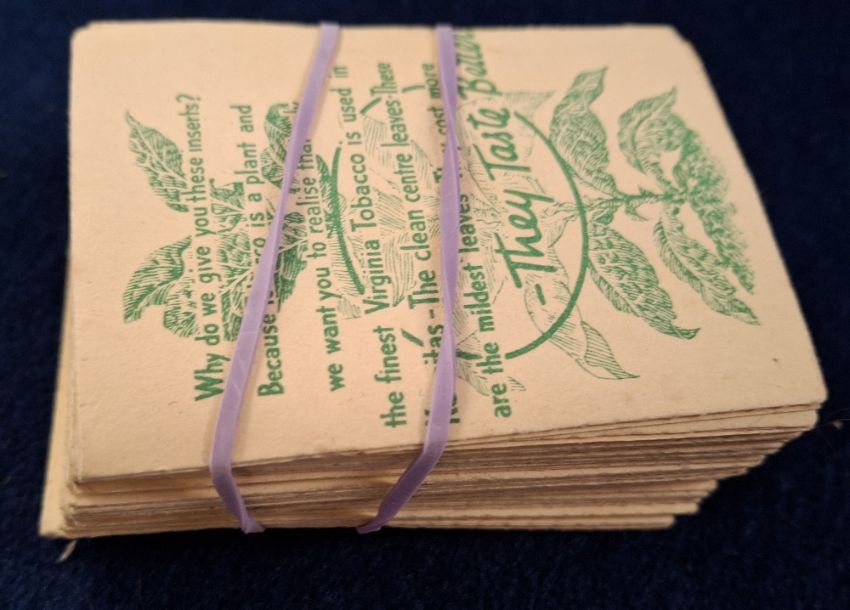 Why do we give you these inserts?
Because is a plant and
we want you to realise that
the finest Virginia Tobacco is used in
-The clean centre leaves-These
are the mildest leaves They cost more
-They Taste Better